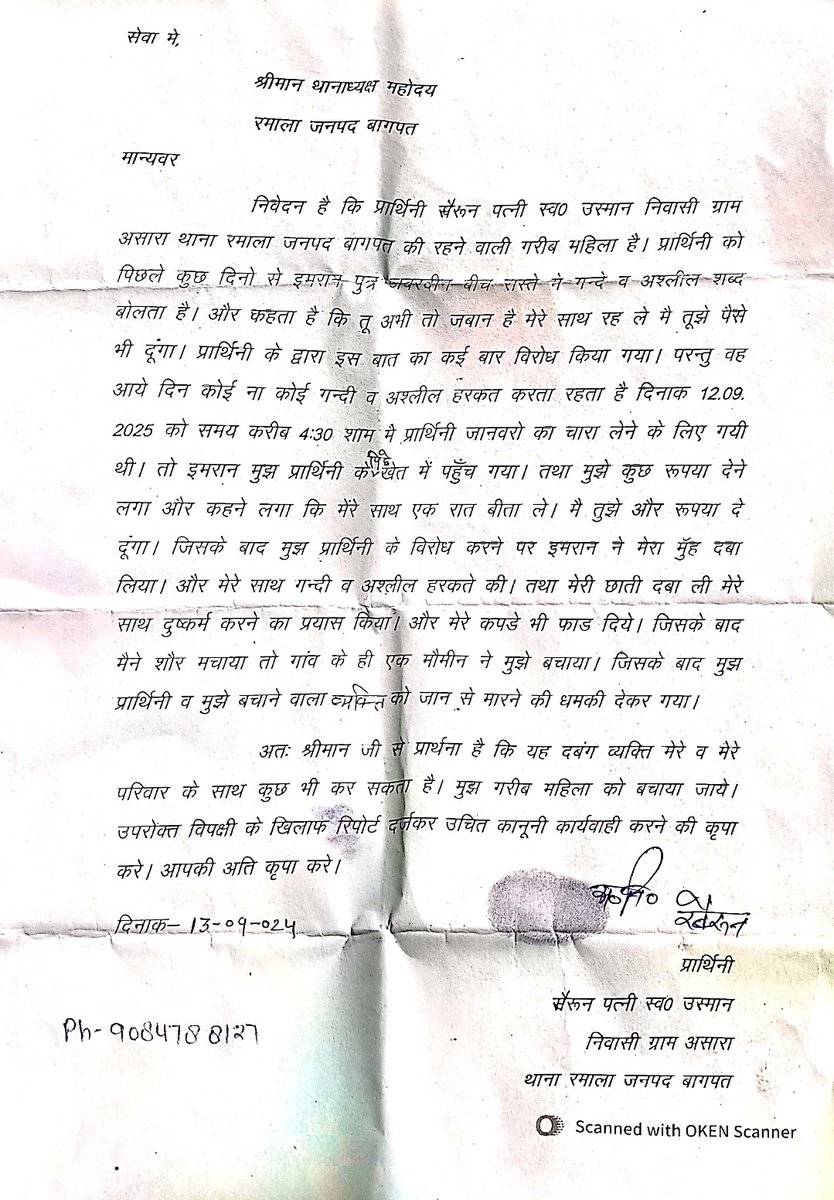 सेवा मे,
श्रीमान थानाध्यक्ष महोदय
रमाला जनपद बागपत
मान्यवर
निवेदन है कि प्रार्थिनी खैरून पत्नी स्व0 उस्मान निवासी ग्राम
असारा थाना रमाला जनपद बागपत की रहने वाली गरीब महिला है। प्रार्थिनी को
पिछले कुछ दिनो से इमरान पुत्र बीच रास्ते ने गन्दे व अश्लील शब्द
बोलता है। और कहता है कि तू अभी तो जबान है मेरे साथ रह ले मै तूझे पैसे
भी दूंगा। प्रार्थिनी के द्वारा इस बात का कई बार विरोध किया गया। परन्तु वह
आये दिन कोई ना कोई गन्दी व अश्लील हरकत करता रहता है दिनाक 12.09.
2025 को समय करीब 4:30 शाम मै प्रार्थिनी जानवरो का चारा लेने के लिए गयी
थी। तो इमरान मुझ प्रार्थिनी के खेत में पहुँच गया। तथा मुझे कुछ रूपया देने
लगा और कहने लगा कि मेंरे साथ एक रात बीता ले। मै तुझे और रूपया दे
दूंगा। जिसके बाद मुझ प्रार्थिनी के विरोध करने पर इमरान ने मेरा मुँह दबा
लिया। और मेरे साथ गन्दी व अश्लील हरकते की। तथा मेरी छाती दबा ली मेरे
साथ दुष्कर्म करने का प्रयास किया। और मेरे कपडे भी फाड दिये। जिसके बाद
मैने शौर मचाया तो गांव के ही एक मौमीन ने मुझे बचाया। जिसके बाद मुझ
प्रार्थिनी व मुझे बचाने वाला व्यक्ति को जान से मारने की धमकी देकर गया।
अतः श्रीमान जी से प्रार्थना है कि यह दबंग व्यक्ति मेरे व मेरे
परिवार के साथ कुछ भी कर सकता है। मुझ गरीब महिला को बचाया जाये।
उपरोक्त विपक्षी के खिलाफ रिपोर्ट दर्जकर उचित कानूनी कार्यवाही करने की कृपा
करे। आपकी अति कृपा करे।
खैरून
दिनाक– 13-09-024
प्रार्थिनी
खैरून पत्नी स्व0 उस्मान
Ph- 9084788127
निवासी ग्राम असारा
थाना रमाला जनपद बागपत
Scanned with OKEN Scanner